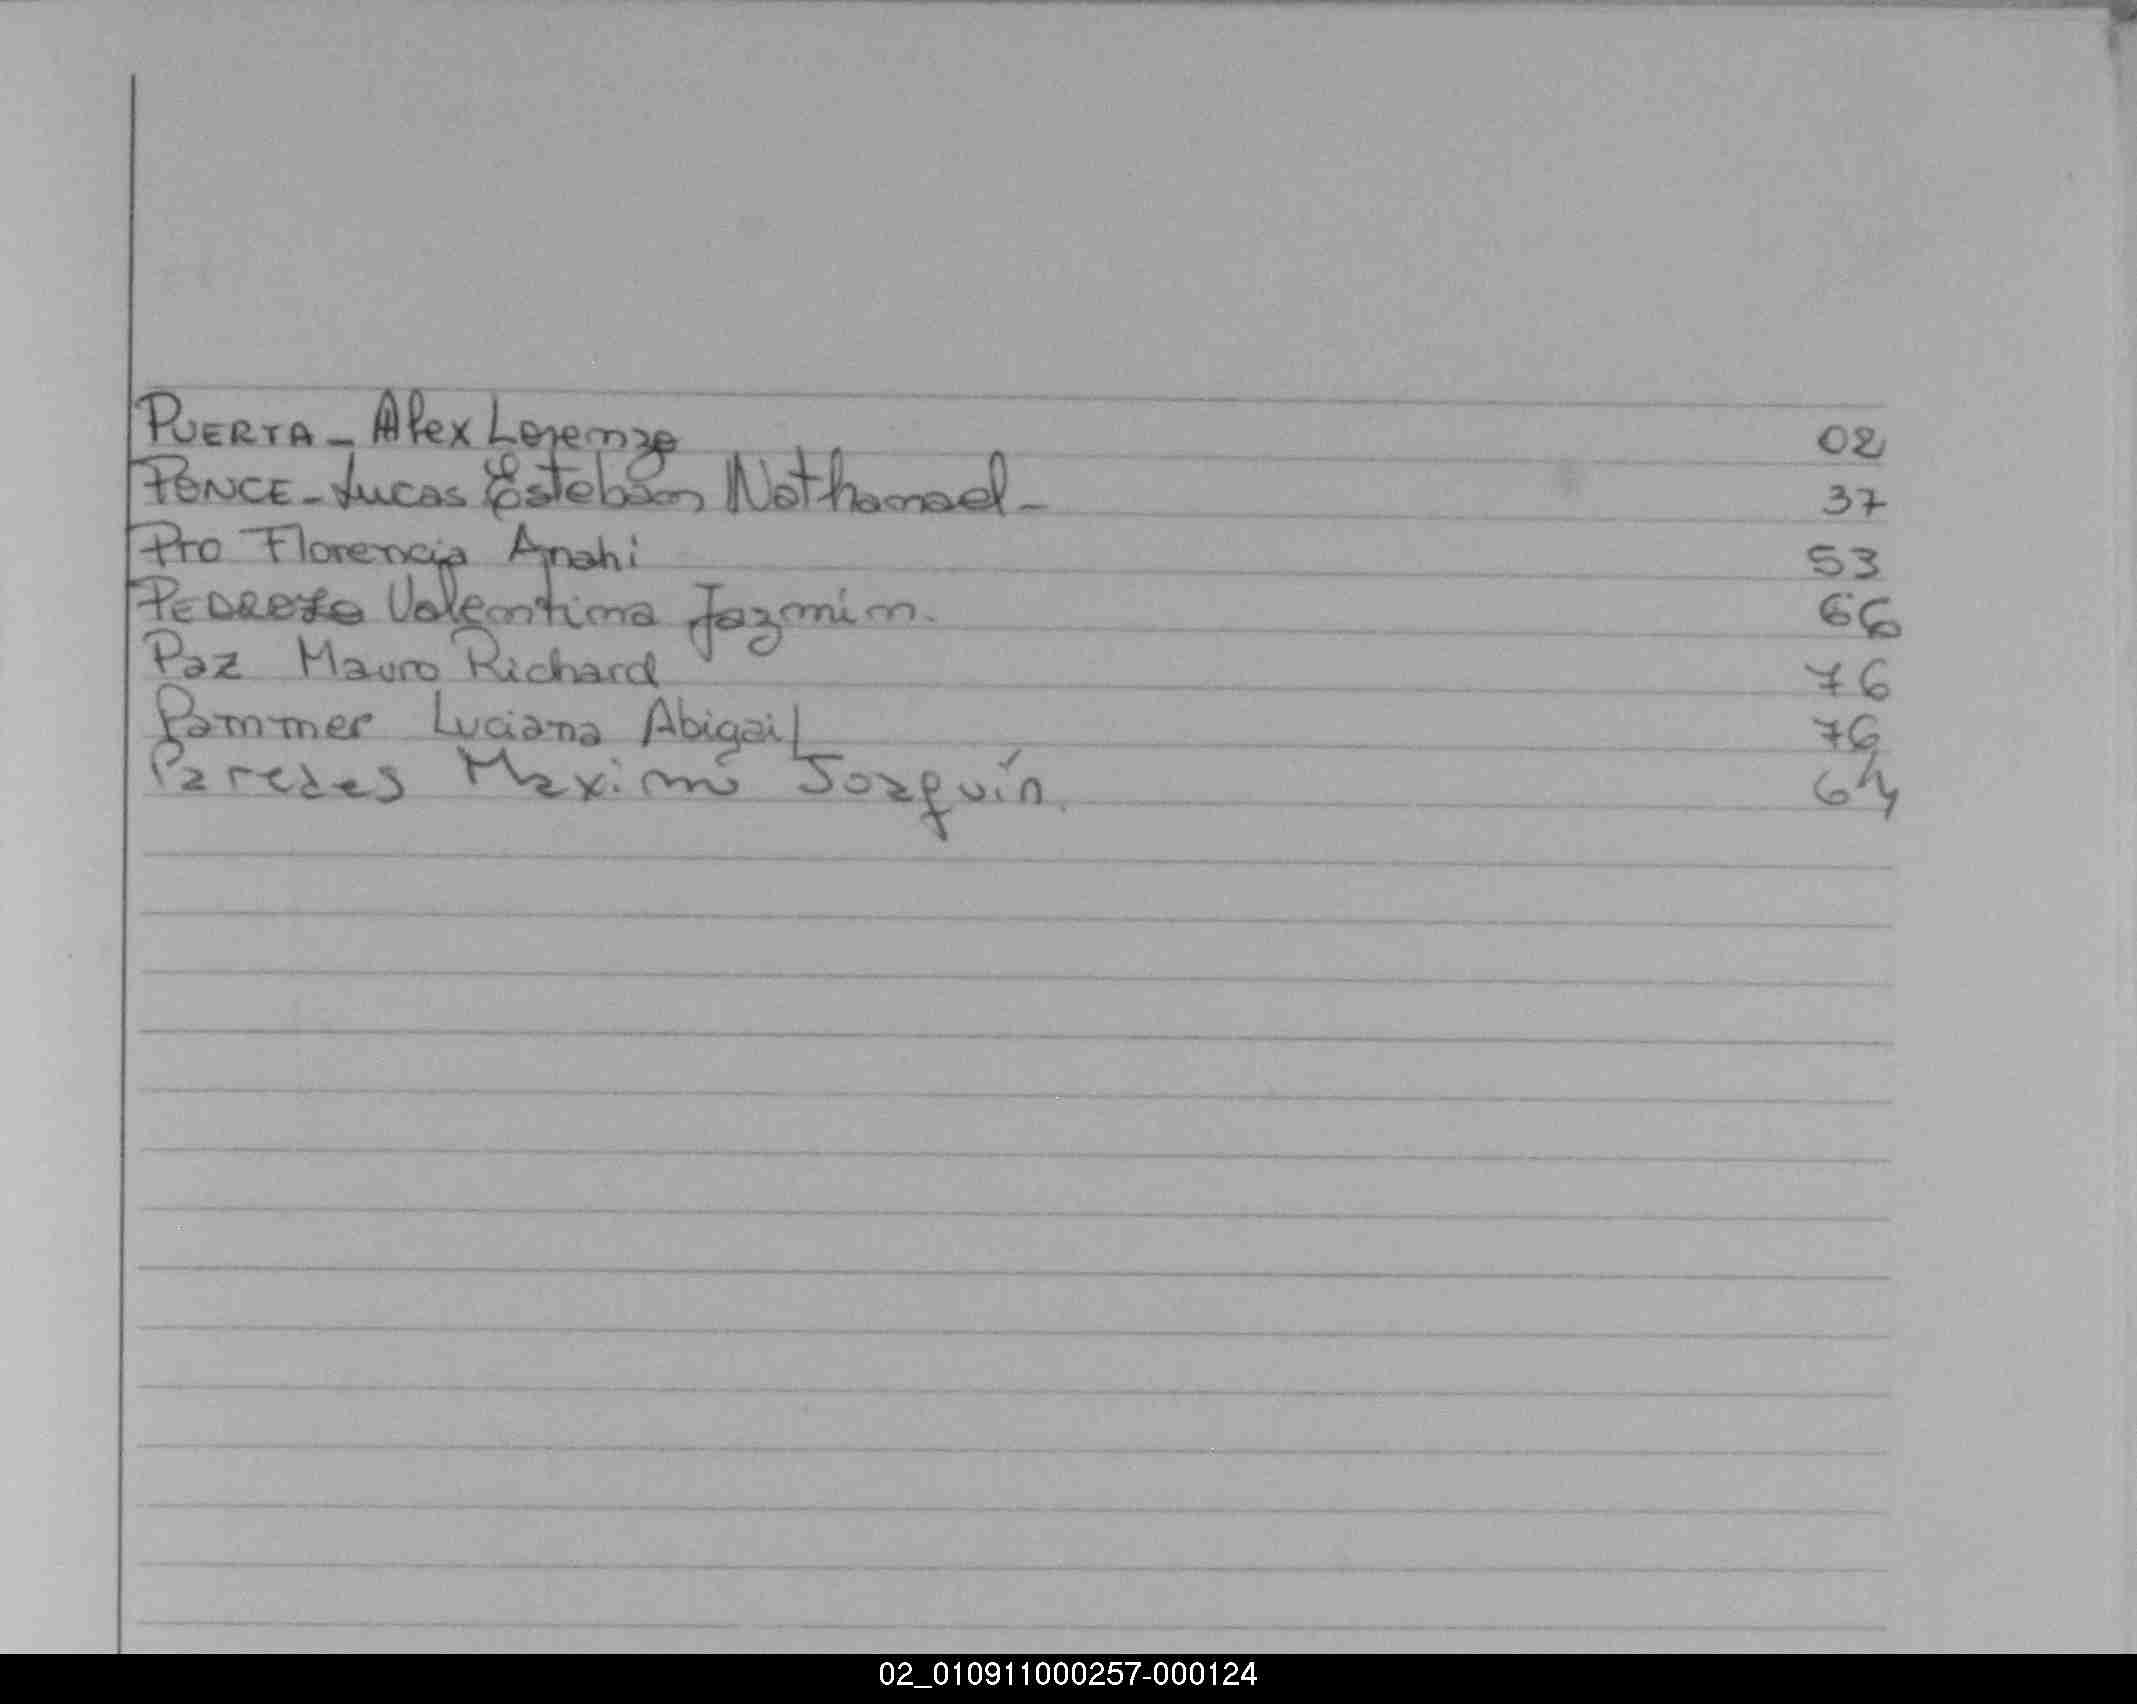 PUERTA - Alex Lorenzo 02
PONCE - Lucas Esteban Nathanael - 37
Pro Florencia Anahi 53
PEDROZO Valentina Jazmin. 66
Paz Mauro Richard 76
Pammer Luciana Abigail 76
Paredes Maximo Joaquín. 64
02_010911000257-000124